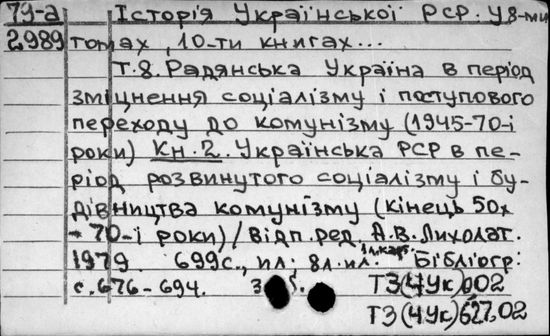 79-а Історія Української РСР. У 8-ми
2989 томах, 10-ти книгах...
Т.8. Радянська Україна в період
зміцнення соціалізму і поступового
переходу до комунізму (1945-70-і
роки) Кн.2. Українська РСР в пе-
ріод розвинутого соціалізму і бу-
дівництва комунізму (кінець 50х
- 70-і роки) / відп. ред. А.В. Лихолат.
1979. 699с., іл; 8л. іл. 1л. карт. Бібліогр:
с. 676-694. ТЗ(4Ук)602
ТЗ(4Ук)627,02